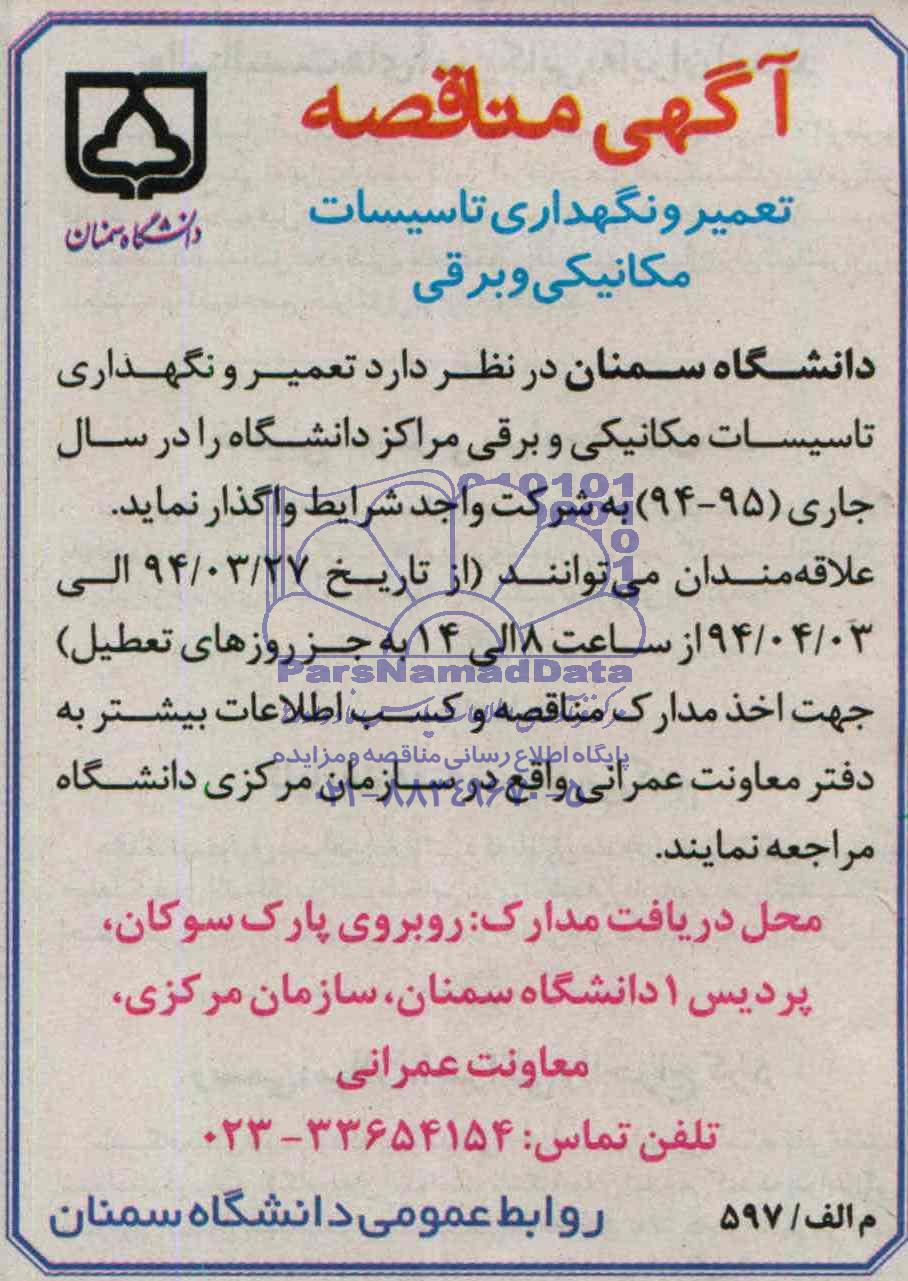 آگهی مناقصه
دانشگاه سمنان
تعمیر و نگهداری تاسیسات
مکانیکی و برقی
دانشگاه سمنان در نظر دارد تعمیر و نگهداری
تاسیسات مکانیکی و برقی مراکز دانشگاه را در سال
جاری (۹۵-۹۴) به شرکت واجد شرایط واگذار نماید.
علاقه‌مندان می‌توانند (از تاریخ ۹۴/۰۳/۲۷ الی
۹۴/۰۴/۰۳ از ساعت ۸ الی ۱۴ به جز روزهای تعطیل)
جهت اخذ مدارک مناقصه و کسب اطلاعات بیشتر به
دفتر معاونت عمرانی واقع در سازمان مرکزی دانشگاه
مراجعه نمایند.
محل دریافت مدارک: روبروی پارک سوکان،
پردیس ۱ دانشگاه سمنان، سازمان مرکزی،
معاونت عمرانی
تلفن تماس: ۳۳۶۵۴۱۵۴ - ۰۲۳
م الف/ ۵۹۷
روابط عمومی دانشگاه سمنان
ParsNamadData
پایگاه اطلاع رسانی مناقصه و مزایده